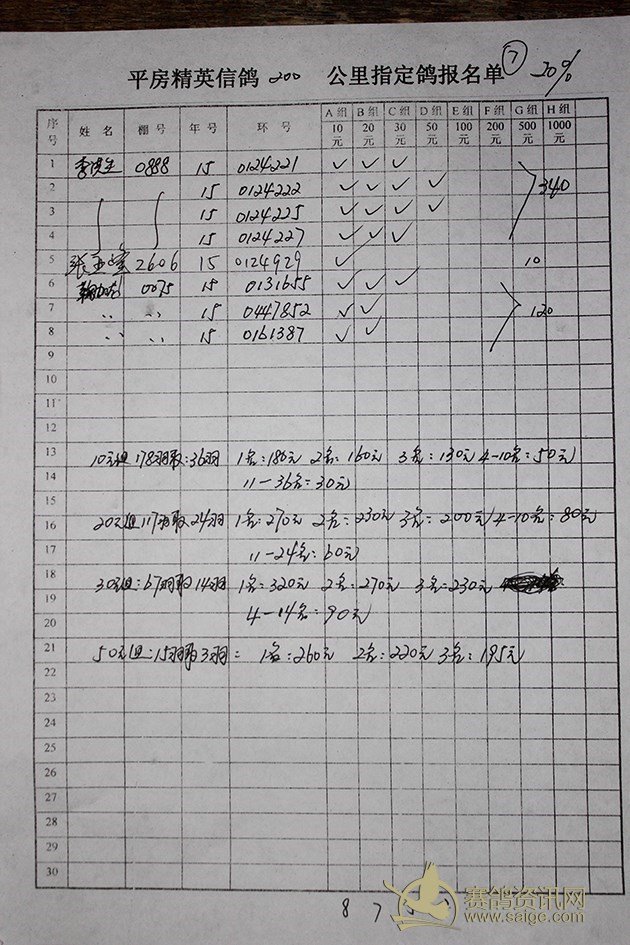 ⑦
平房精英信鸽 200 公里指定鸽报名单 20%
序号 姓 名 棚 号 年 号 环 号 A 组 B 组 C 组 D 组 E 组 F 组 G 组 H 组
10元 20元 30元 50元 100元 200元 500元 1000元
1 0888 15 0124221 ✓ ✓ ✓
2 15 0124222 ✓ ✓ ✓ ✓ 340
3 15 0124225 ✓ ✓ ✓ ✓
4 15 0124227 ✓ ✓ ✓
5 2606 15 0124929 ✓ 10
6 0075 15 0131655 ✓ ✓ ✓
7 〃 〃 15 0447852 ✓ ✓ 120
8 〃 〃 15 0161387 ✓ ✓
9
10
11
12
13 10元组178羽取:36羽 1名:180元 2名:160元 3名:130元 4-10名:50元
14 11-36名:30元
15
16 20元组117羽取24羽 1名:270元 2名:230元 3名:200元 4-10名:80元
17 11-24名:60元
18 30元组:67羽取14羽 1名:320元 2名:270元 3名:230元
19
20 4-14名:90元
21 50元组:15羽取3羽: 1名:260元 2名:220元 3名:195元
22
23
24
25
26
27
28
29
30
8 7
赛鸽资讯网
www.saige.com